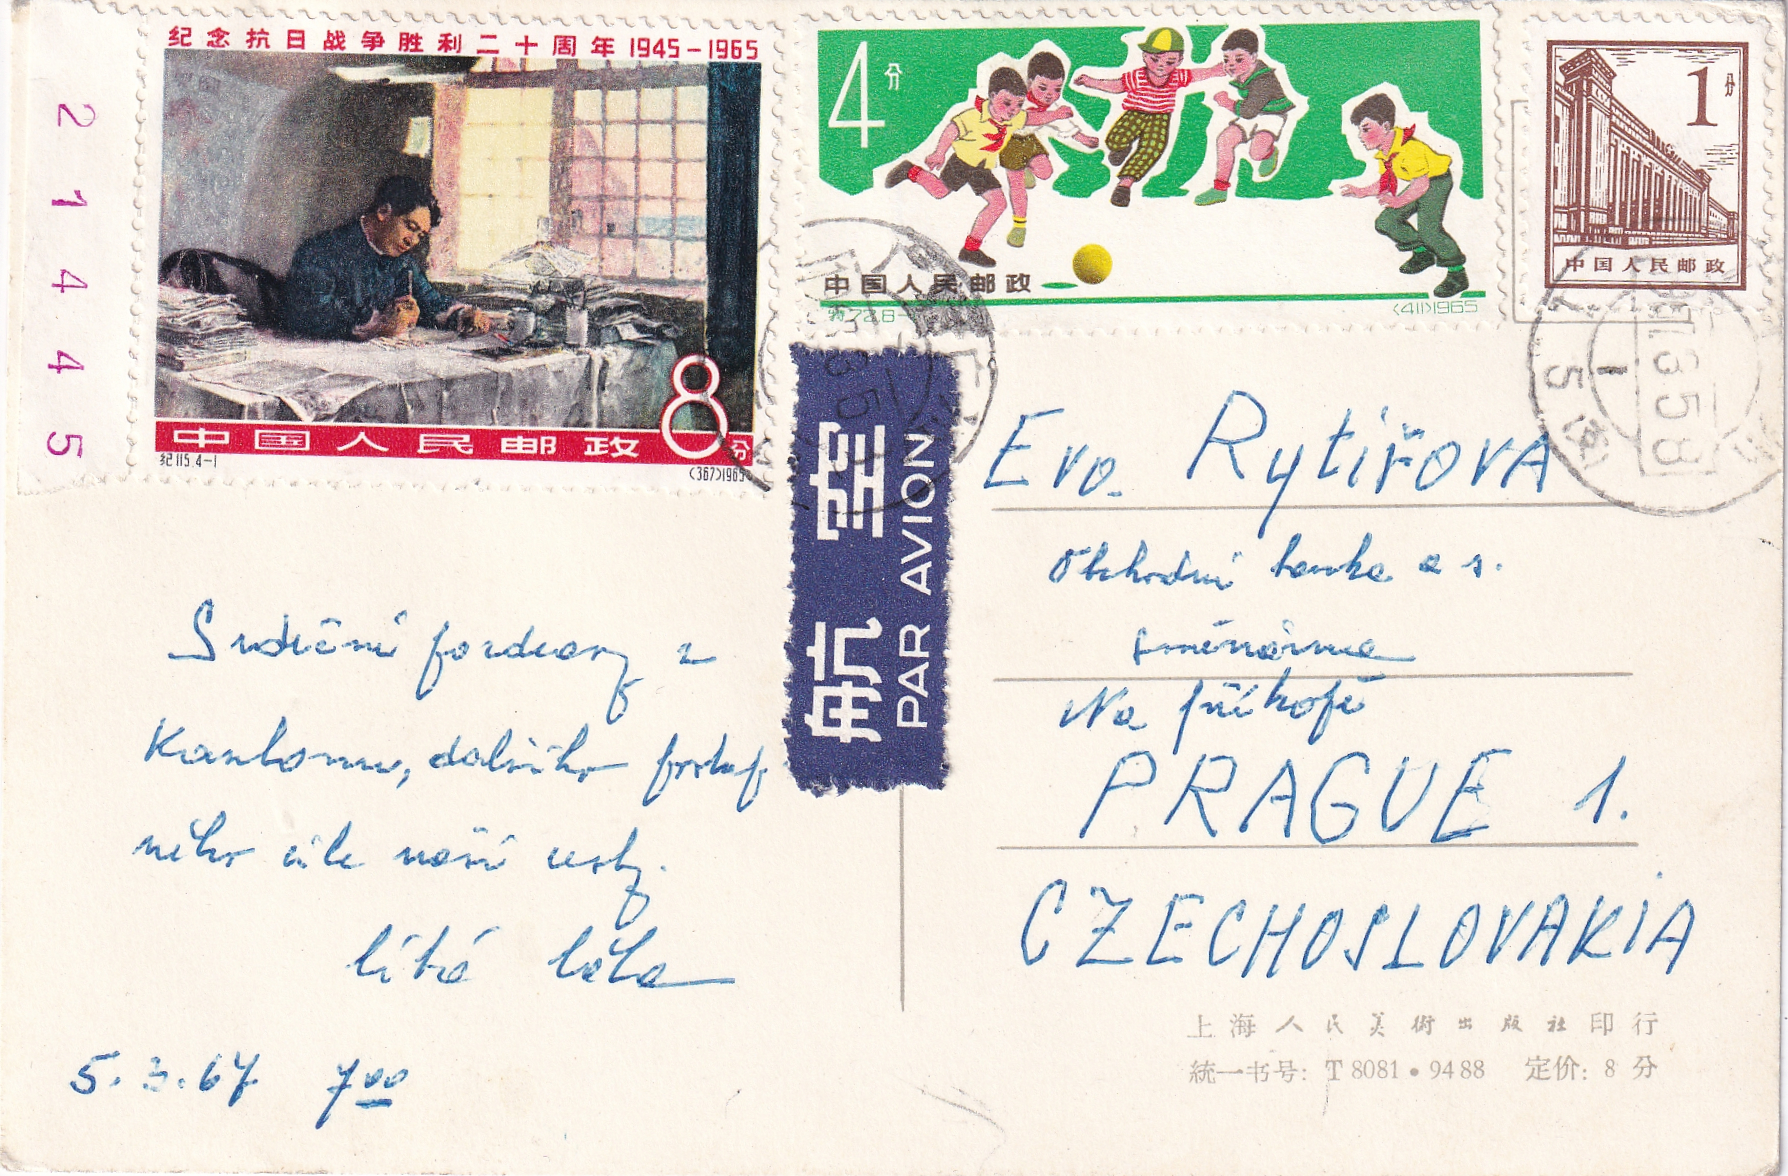 纪念抗日战争胜利二十周年 1945-1965
8分
中国人民邮政
纪115.4-1
(367)1965
214445
4分
中国人民邮政
特72.6-
(411)1965
1分
中国人民邮政
67.3.5.8
航空
PAR AVION
Srdečné pozdravy z
Kantonu, dalšího
ného cíle naší cesty.
5.3.67 7⁰⁰
Eva Rytířova
Obchodní banka a s.
směnárna
Na příkopě
PRAGUE 1.
CZECHOSLOVAKIA
上海人民美術出版社印行
統一书号: T 8081•9488 定价: 8 分